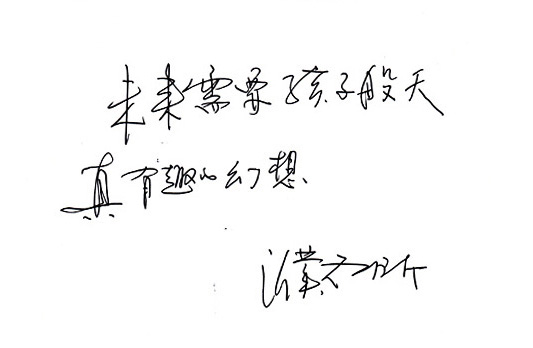 未来需要孩子般天
真有趣的幻想.